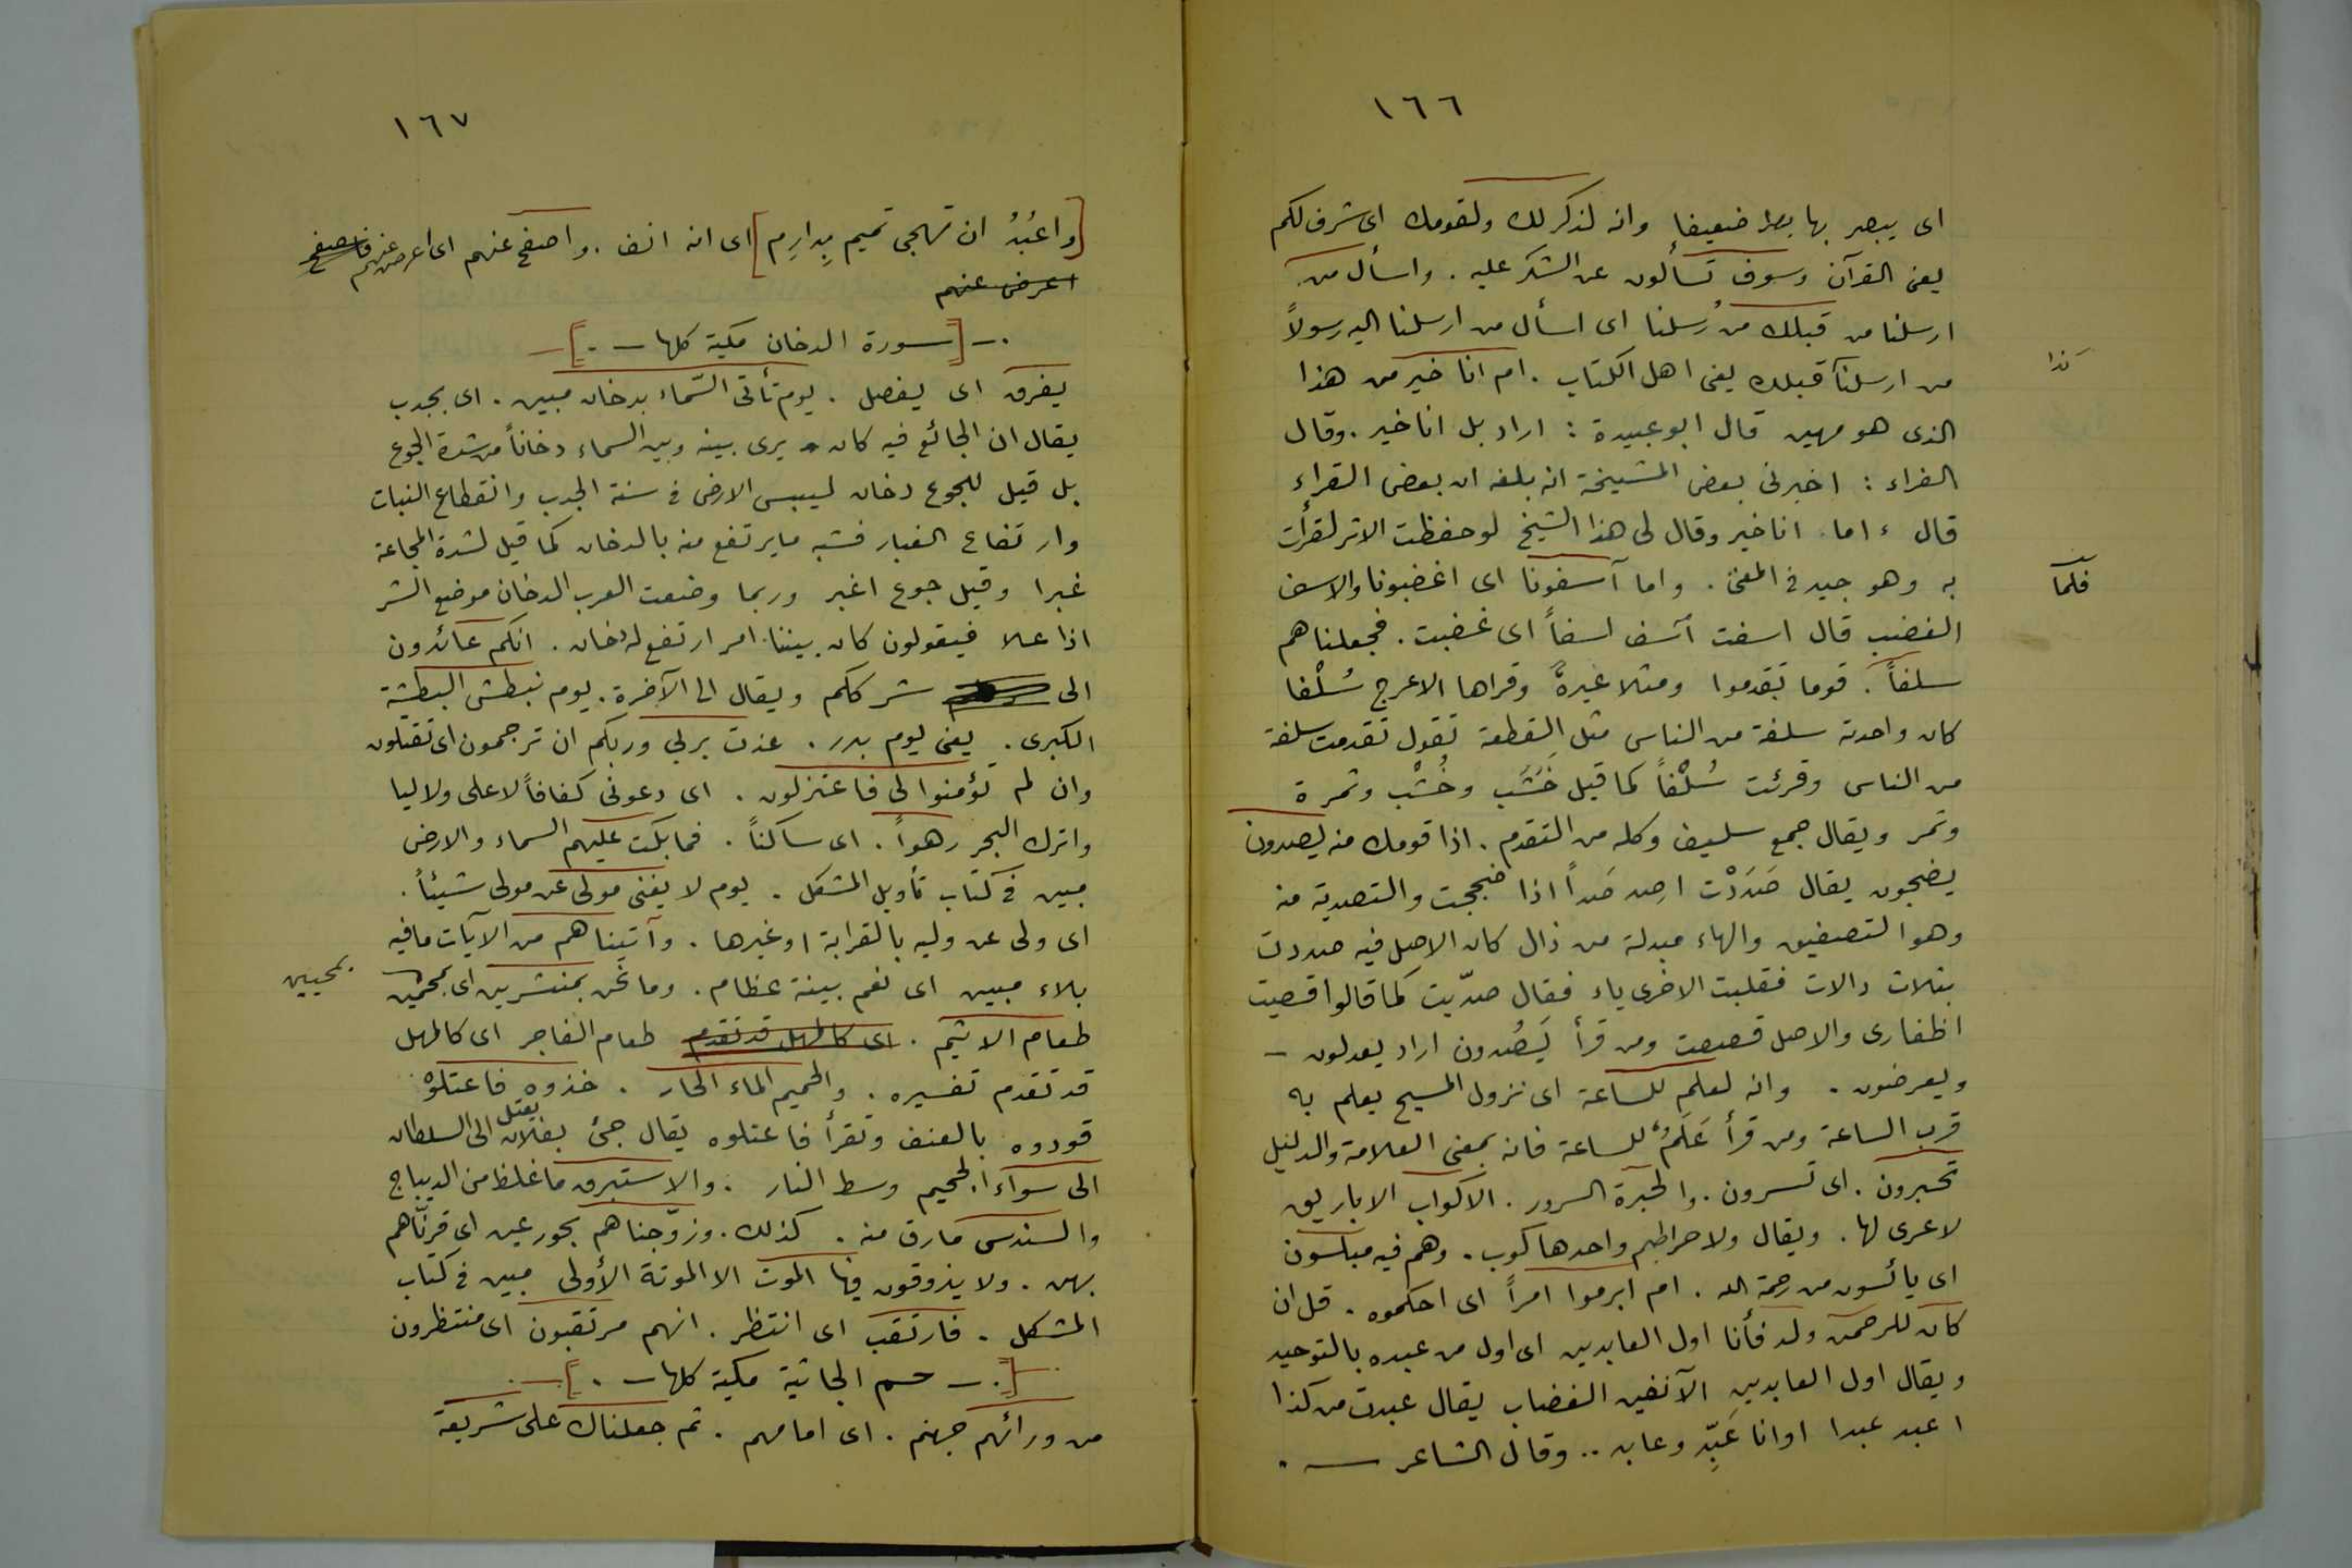 ١٦٦
اى يبصر بها بصرا ضعيفا وانه لذكر لك ولقومك اى شرف لكم
يعنى القرآن وسوف تسألون عن الشكر عليه . واسأل من
ارسلنا من قبلك من رُسلنا اى اسأل من ارسلنا اليه رسولاً
من ارسلنا قبلك يعنى اهل الكتاب . ام انا خير من هذا
كذا
الذى هو مهين قال ابو عبيدة : اراد بل انا خير . وقال
الفراء : اخبرنى بعض المشيخة انه بلغه ان بعض القراء
قال ، اما انا خير وقال لى هذا الشيخ لو حفظت الاثر لقرأت
به وهو جيد فى المعنى . واما آسفونا اى اغضبونا والاسف
فلما
الغضب قال اسفت آسف اسفاً اى غضبت . فجعلناهم
سلفاً . قوما تقدموا ومثلا عبرةً وقراها الاعرج سُلْفا
كان واحدته سلفة من الناس مثل القطعة تقول تقدمت سلفة
من الناس وقرئت سُلْفاً كما قيل خَشَب وخُشْب وثمرة
وثمر ويقال جمع سليف وكله من التقدم . اذا قومك منه يصدون
يضجون يقال صَدَدْت اصِد صَداً اذا ضججت والتصدية منه
وهو التصفيق والهاء مبدلة من دال كان الاصل فيه صددت
بثلاث دالات فقلبت الاخرى ياء فقال صدّيت كما قالوا قصيت
اظفارى والاصل قصصت ومن قرأ يَصُدون اراد يعدلون –
ويعرضون . وانه لعلم للساعة اى نزول المسيح يعلم به
قرب الساعة ومن قرأ عَلَمٌ للساعة فانه بمعنى العلامة والدليل
تحبرون . اى تسرون . والحبرة السرور . الاكواب الاباريق
لا عرى لها . ويقال ولا خراطيم واحدها كوب . وهم فيه مبلسون
اى يائسون من رحمة الله . ام ابرموا امراً اى احكموه . قل ان
كان للرحمن ولد فأنا اول العابدين اى اول من عبده بالتوحيد
ويقال اول العابدين الآنفين الغضاب يقال عبدت من كذا
اعبد عبدا اوانا عَبِدٌ وعابد .. وقال الشاعر — .
١٦٧
[واعْبُدُ ان تهجى تميم بِدارِم] اى انه انف . واصفح عنهم اى اعرض عنهم فاصفح
اعرض عنهم
. – [ سورة الدخان مكية كلها – . ] –
يفرق اى يفصل . يوم تأتى السّماء بدخان مبين . اى بجدب
يقال ان الجائع فيه كان يرى بينه وبين السماء دخاناً من شدة الجوع
بل قيل للجوع دخان ليبس الارض فى سنة الجدب وانقطاع النبات
وارتفاع الغبار فشبه ما يرتفع منه بالدخان كما قيل لشدة المجاعة
غبرا وقيل جوع اغبر وربما وضعت العرب الدخان موضع الشر
اذا علا فيقولون كان بيننا امر ارتفع له دخان . انكم عائدون
الى شرككم ويقال الى الآخرة . يوم نبطش البطشة
الكبرى . يعنى يوم بدر . عذت بربي وربكم ان ترجمون اى تقتلون
وان لم تؤمنوا لى فاعتزلون . اى دعونى كفافاً لا على ولا ليا
واترك البحر رهواً . اى ساكناً . فما بكت عليهم السماء والارض
مبين فى كتاب تأويل المشكل . يوم لا يغنى مولى عن مولى شيئاً .
اى ولى عن وليه بالقرابة او غيرها . وآتيناهم من الآيات ما فيه
بلاء مبين اى نعم بينة عظام . وما نحن بمنشرين اى بمحيين
بمحيين
طعام الاثيم . اى كالمهل قد تقدم طعام الفاجر اى كالمهل
قد تقدم تفسيره . والحميم الماء الحار . خذوه فاعتلوْ
قودوه بالعنف وتقرأ فاعتلوه يقال جئ بفلان يعتل الى السلطان
الى سواء الجحيم وسط النار . والاستبرق ما غلظ من الديباج
والسندس مارق منه . كذلك . وزوّجناهم بحور عين اى قرنّاهم
بهن . ولا يذوقون فيها الموت الا الموتة الأولى مبين فى كتاب
المشكل . فارتقب اى انتظر . انهم مرتقبون اى منتظرون
[ . – حم الجاثية مكية كلها – . ] –
من ورائهم جهنم . اى امامهم . ثم جعلناك على شريعة